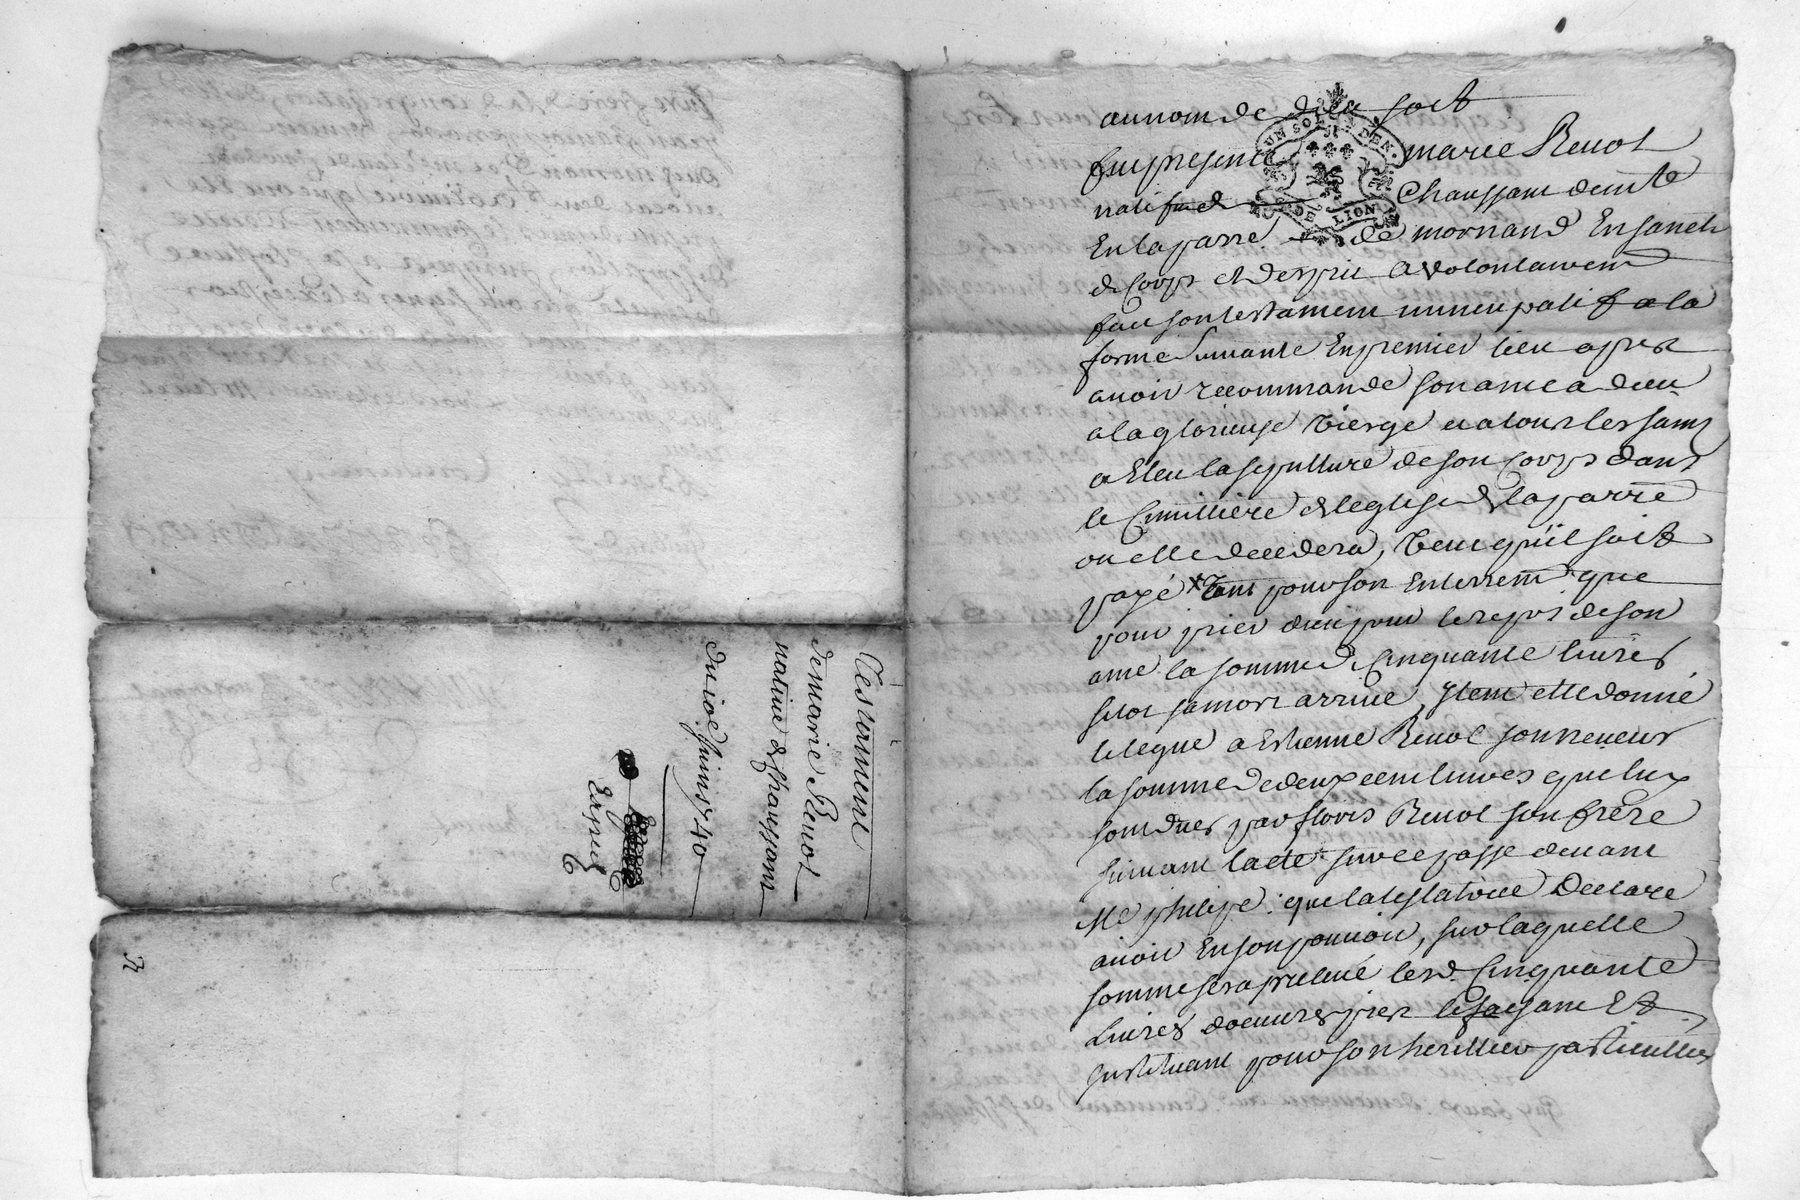 Testament
de marie Revol
native de chaussant
du 10e Juin 1740
Expedié
au nom de dieu soit
fut presente marie Revol
native de Chaussant demte
En la parre de mornand En santé
de Corps et desprit a volontairemt
fait son testament nuncupatif a la
forme suivante En premier lieu apres
avoir recommandé son ame a dieu
a la glorieuse Vierge et a tous les saints
a Eleu la sepulture de son Corps dans
le Cimittiere de leglise de la parre
ou elle decedera, Veut quil soit
payé tant pour son Enterremt que
pour prier dieu pour le repos de son
ame la somme de Cinquante livres
sitot sa mort arrivé, Item elle donne
et legue a Estienne Revol son neveur
la somme de deux cent livres que luy
sont dues par floris Revol son frere
suivant lacte sur ce passé devant
Me philipe que la testatrice Declare
avoir En son pouvoir, sur laquelle
somme sera prelevé lesd. Cinquante
Livres doeuvres pies le faisant Et
instituant pour son herittier particullier
UN SOL
DE LION